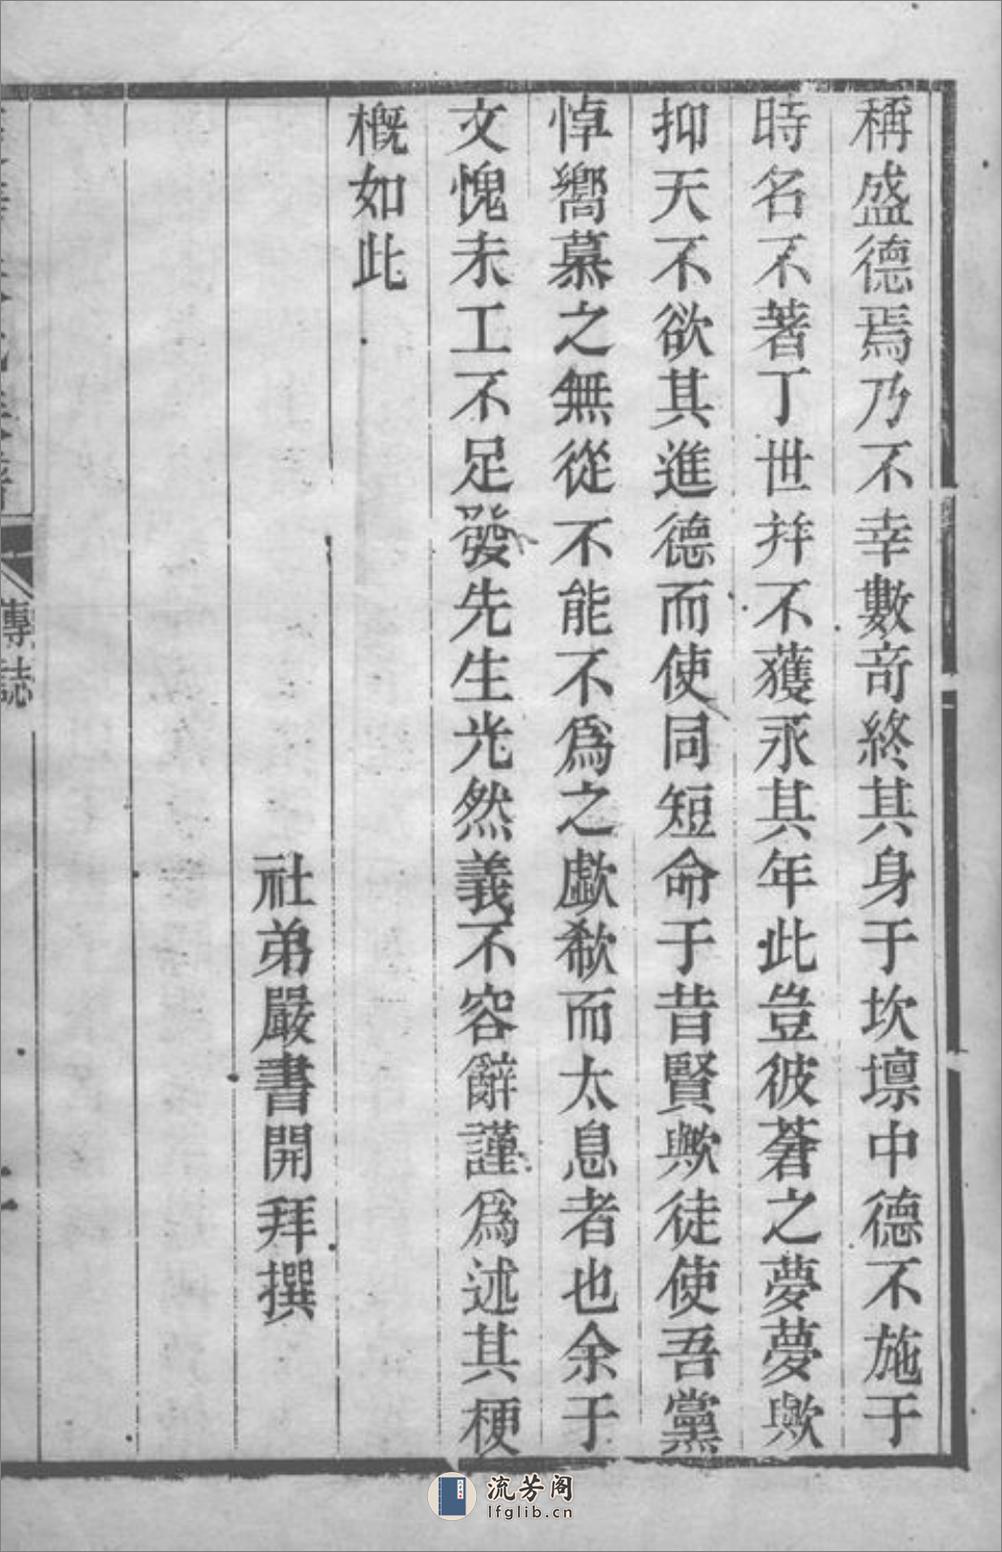 稱盛德焉乃不幸數奇終其身于坎壈中德不施于
時名不著丁世并不獲永其年此豈彼蒼之夢夢歟
抑天不欲其進德而使同短命于昔賢歟徒使吾黨
悼嚮慕之無從不能不爲之歔欷而太息者也余于
文愧未工不足發先生光然義不容辭謹爲述其梗
概如此
社弟嚴書開拜撰
傳誌
流芳阁
lfglib.cn